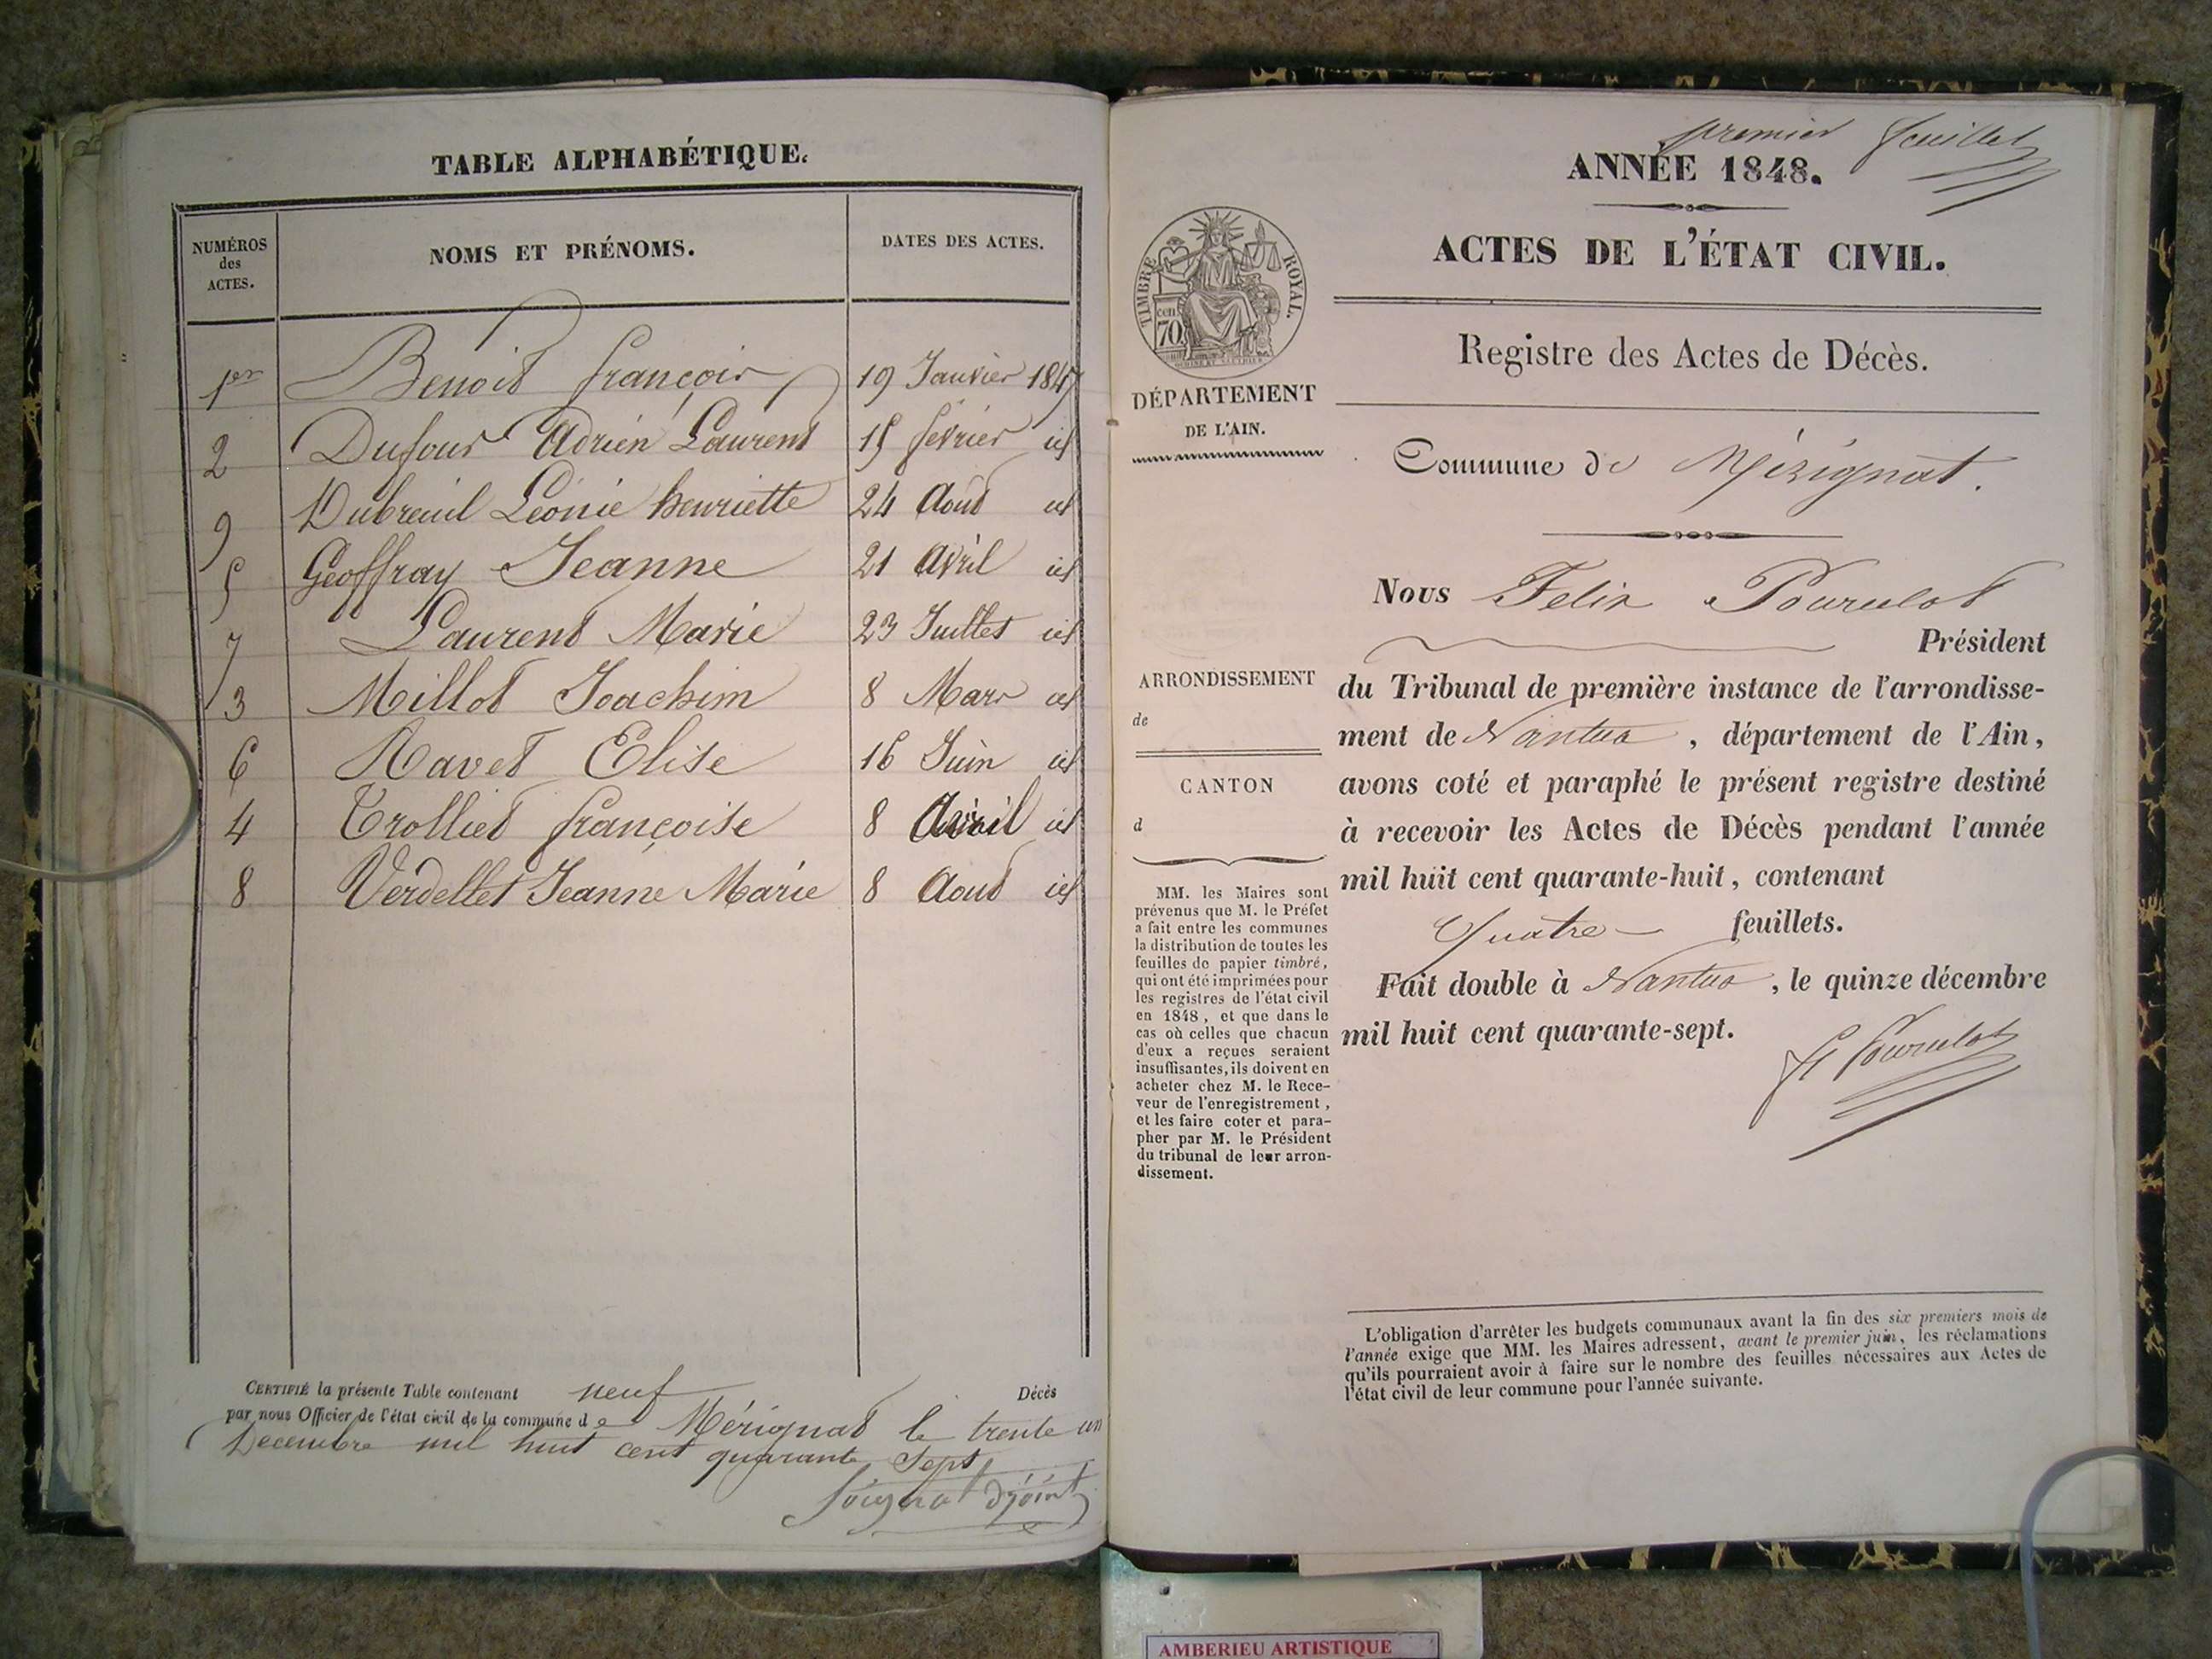 TABLE ALPHABÉTIQUE.
NUMÉROS des ACTES.
NOMS ET PRÉNOMS.
DATES DES ACTES.
1er Benoit françois 19 Janvier 1847
2 Dufour Adrien Laurent 15 février id
9 Dubreuil Léonie henriette 24 Aout id
5 Geoffray Jeanne 21 Avril id
7 Laurent Marie 23 Juillet id
3 Millot Joachim 8 Mars id
6 Ravet Elise 16 Juin id
4 Trolliet françoise 8 Avril id
8 Verdellet Jeanne Marie 8 Aout id
CERTIFIÉ la présente Table contenant neuf Décès
par nous Officier de l'état civil de la commune de Mérignat le trente un
Decembre mil huit cent quarante Sept
premier feuillet
ANNÉE 1848.
ACTES DE L'ÉTAT CIVIL.
TIMBRE ROYAL.
cen. 70
DÉPARTEMENT
DE L'AIN.
Registre des Actes de Décès.
Commune de Mérignat.
Nous Felix Pourulot
Président
ARRONDISSEMENT
de
CANTON
d
du Tribunal de première instance de l'arrondisse-
ment de Nantua, département de l'Ain,
avons coté et paraphé le présent registre destiné
à recevoir les Actes de Décès pendant l'année
mil huit cent quarante-huit, contenant
Quatre feuillets.
Fait double à Nantua, le quinze décembre
mil huit cent quarante-sept.
F Pourulot
MM. les Maires sont
prévenus que M. le Préfet
a fait entre les communes
la distribution de toutes les
feuilles de papier timbré,
qui ont été imprimées pour
les registres de l'état civil
en 1848, et que dans le
cas où celles que chacun
d'eux a reçues seraient
insuffisantes, ils doivent en
acheter chez M. le Rece-
veur de l'enregistrement,
et les faire coter et para-
pher par M. le Président
du tribunal de leur arron-
dissement.
L'obligation d'arrêter les budgets communaux avant la fin des six premiers mois de
l'année exige que MM. les Maires adressent, avant le premier juin, les réclamations
qu'ils pourraient avoir à faire sur le nombre des feuilles nécessaires aux Actes de
l'état civil de leur commune pour l'année suivante.
AMBERIEU ARTISTIQUE